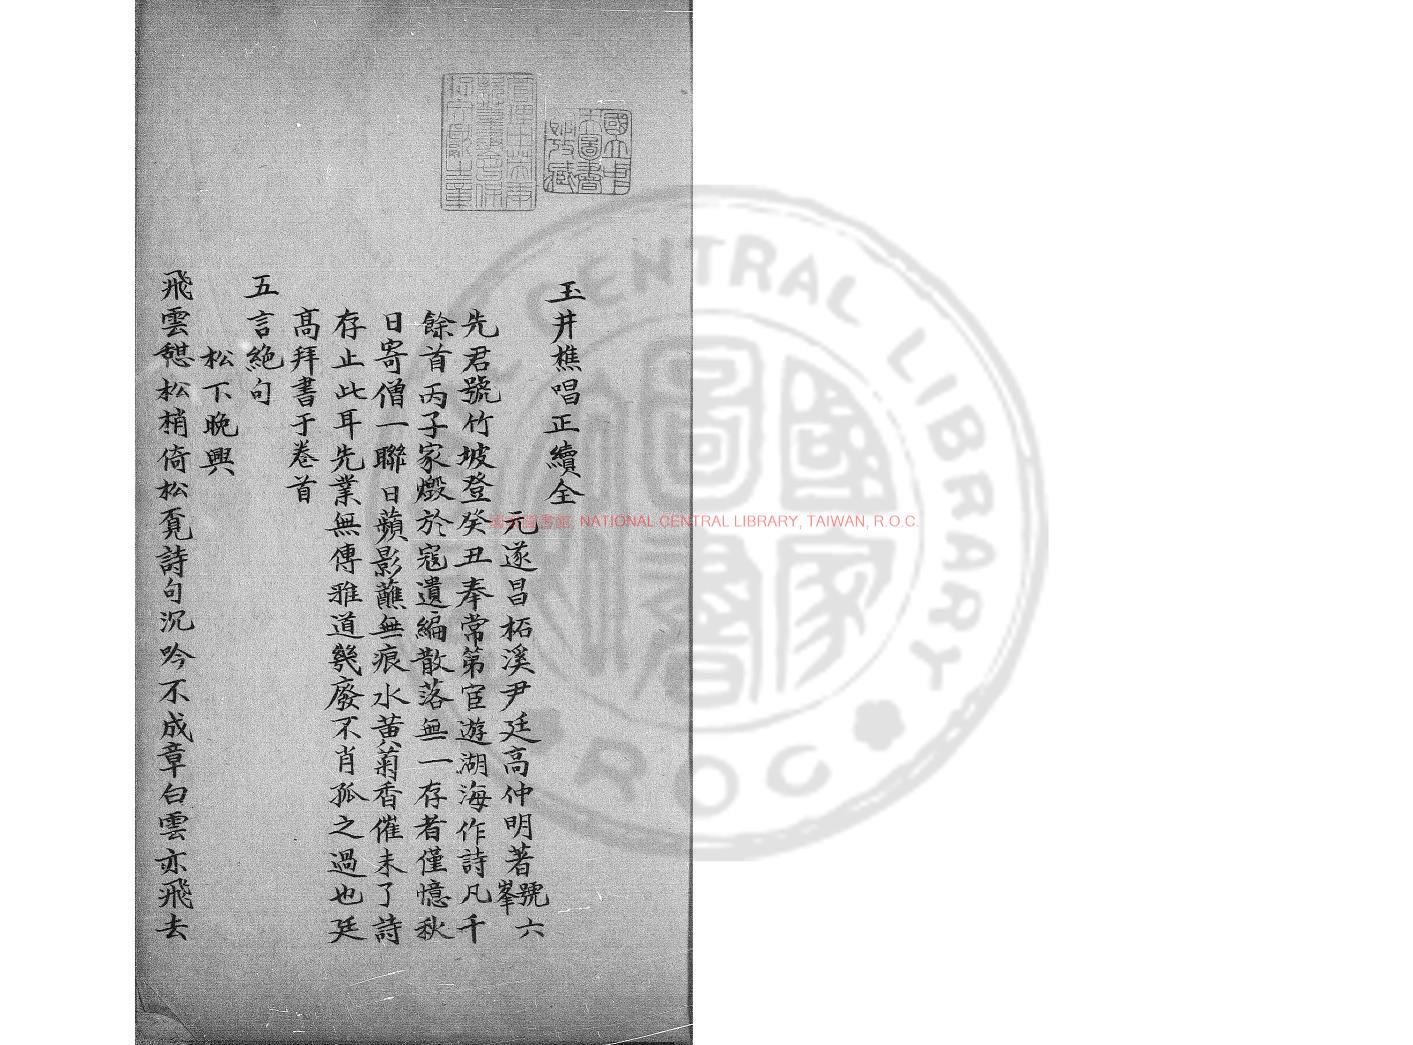 玉井樵唱正續全
元遂昌柘溪尹廷高仲明著號六峯
先君號竹坡登癸丑奉常第宦遊湖海作詩凡千
餘首丙子家燬於寇遺編散落無一存者僅憶秋
日寄僧一聯曰蘋影蘸無痕水黄菊香催未了詩
存止此耳先業無傳雅道幾廢不肖孤之過也廷
高拜書于卷首
五言絶句
松下晚興
飛雲憩松梢倚松覓詩句沉吟不成章白雲亦飛去
國立中央圖書館收藏
國家圖書館, NATIONAL CENTRAL LIBRARY, TAIWAN, R.O.C.
CENTRAL LIBRARY
ROC